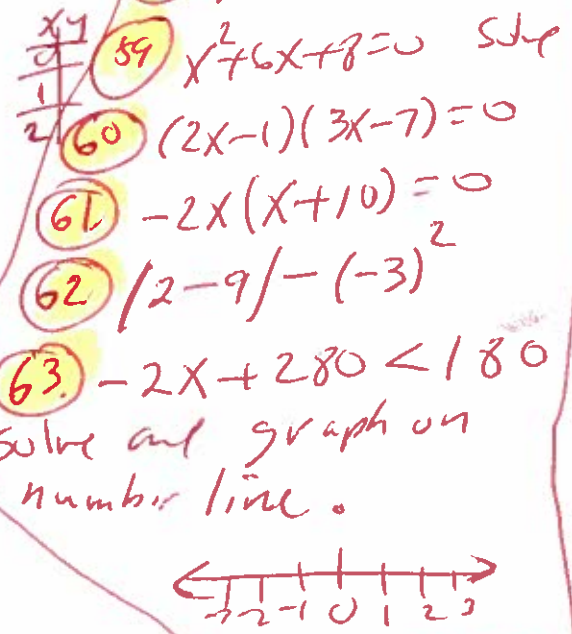 x y
0
1
2
59 x²+6x+8=0 solve
60 (2x-1)(3x-7)=0
61. -2x(x+10)=0
62 |2-9|-(-3)²
63. -2x+280<180
solve and graph on
number line.
-3 -2 -1 0 1 2 3